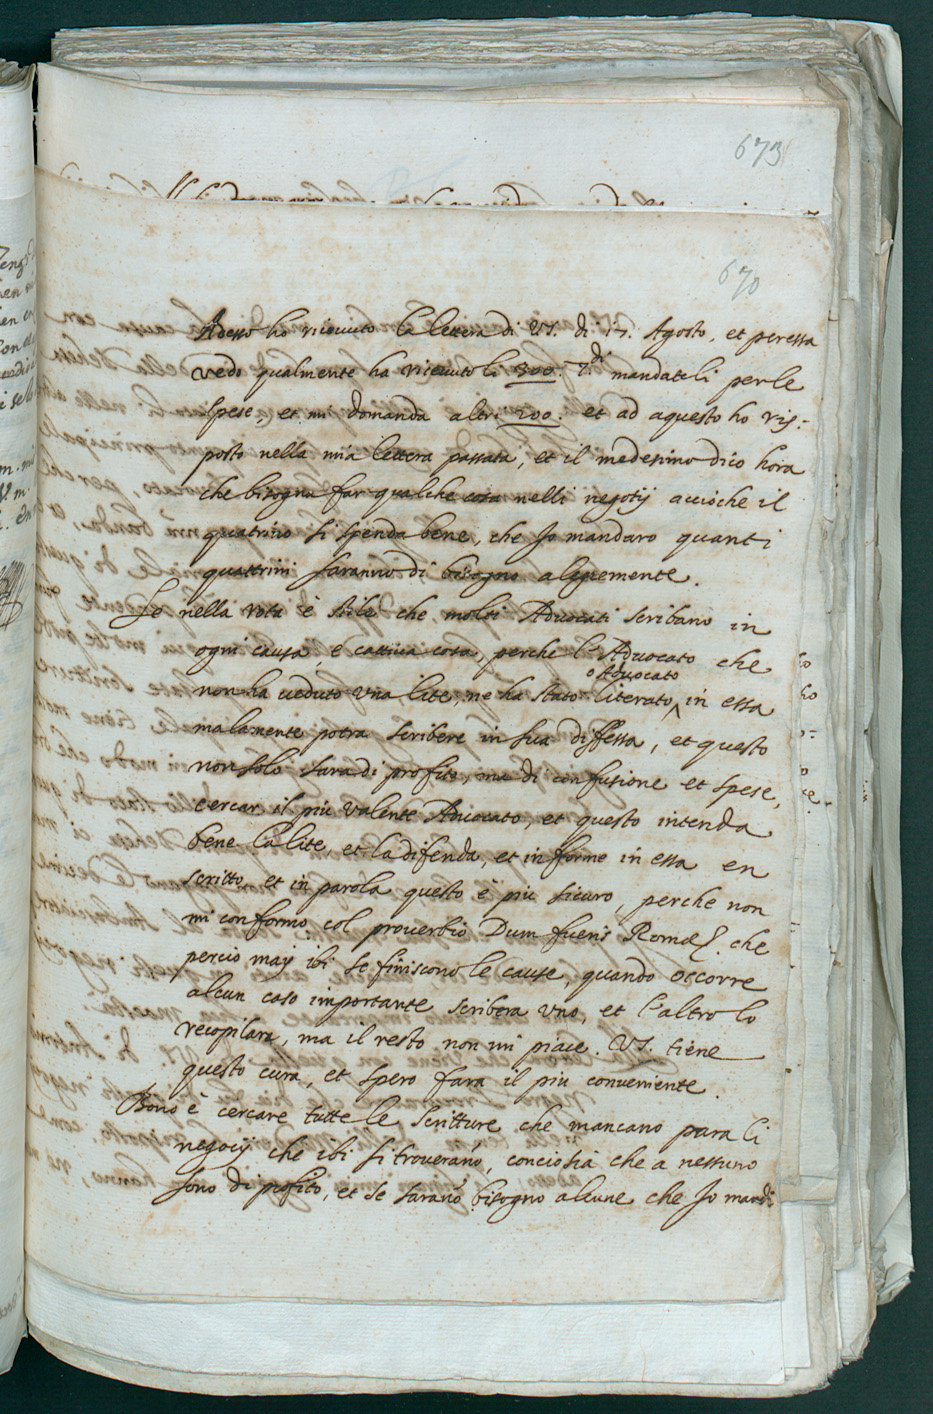 673
670
Adesso ho riceuuto la lettera di VS. di 17. Agosto, et peressa
vedo qualmente ha riceuuto li 300 di mandateli perle
spese, et mi domanda altri 200. et ad aquesto ho ris:
posto nella mia lettera passata, et il medesimo dico hora
che bisogna far qualche cosa nelli negotij accioche il
quatrino si spenda bene, che Jo mandaro quanti
quattrini saranno di bisogno alegremente.
Se nella rota è stile che molti Aduocati scribano in
ogni causa, è cattiua cosa, perche l'Aduocato che
non ha ueduto una lite, ne ha stato literato in essa
o Aduocato
malamente potra scribere in sua diffessa, et questo
non solo sara di profito, ma di confusione et spese,
cercar il più valente Aduocato, et questo intenda
bene la lite, et la difenda, et informe in essa en
scritto, et in parola questo è piu sicuro, perche non
mi conformo col proverbio Dum fueris Rome che
percio may ibi se finiscono le cause, quando occorre
alcun caso importante scribera uno, et l'altro lo
recopilara, ma il resto non mi piace. VS. tiene
questo cura, et spero fara il piu conueniente.
Bono è cercare tutte le scritture che mancano para li
negocij che ibi si troverano, conciosia che a nessuno
sono di profito, et se sarano bisogno alcune che Jo mandi